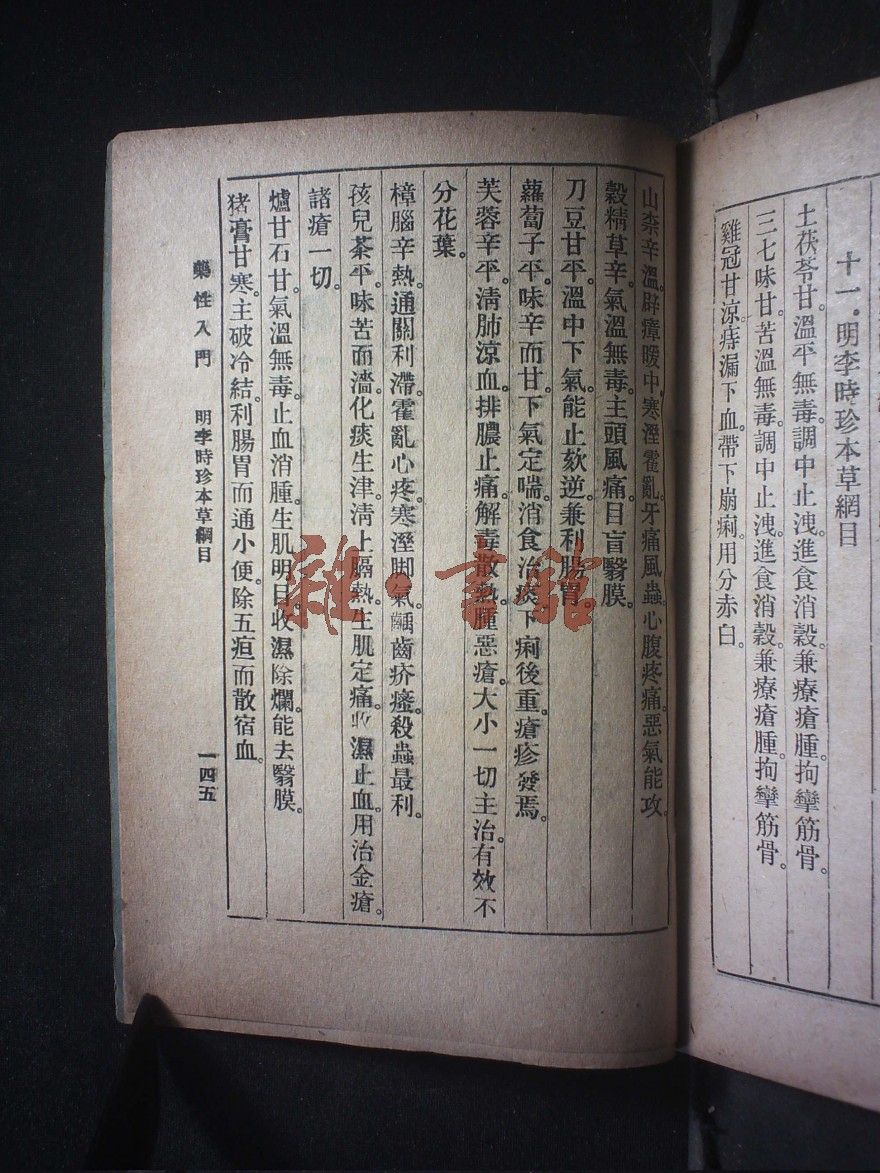 十一．明李時珍本草綱目
土茯苓甘。溫平無毒。調中止洩。進食消穀。兼療瘡腫。拘攣筋骨。
三七味甘。苦溫無毒。調中止洩。進食消穀。兼療瘡腫。拘攣筋骨。
雞冠甘涼。痔漏下血。帶下崩痢。用分赤白。
山柰辛溫。辟瘴暖中。寒溼霍亂。牙痛風蟲。心腹疼痛。惡氣能攻。
穀精草辛。氣溫無毒。主頭風痛。目盲翳膜。
刀豆甘平。溫中下氣。能止欬逆。兼利腸胃。
蘿蔔子平。味辛而甘。下氣定喘。消食治痰。下痢後重。瘡疹發焉。
芙蓉辛平。淸肺涼血。排膿止痛。解毒散熱。腫惡瘡。大小一切主治。有效不
分花葉。
樟腦辛熱。通關利滯。霍亂心疼。寒溼脚氣。齲齒疥瘙。殺蟲最利。
孩兒茶平。味苦而濇。化痰生津。淸上膈熱。生肌定痛。收濕止血。用治金瘡。
諸瘡一切。
爐甘石甘。氣溫無毒。止血消腫。生肌明目。收濕除爛。能去翳膜。
猪膏甘寒。主破冷結。利腸胃而通小便。除五疸而散宿血。
藥性入門　明李時珍本草綱目　一四五
雜·書館